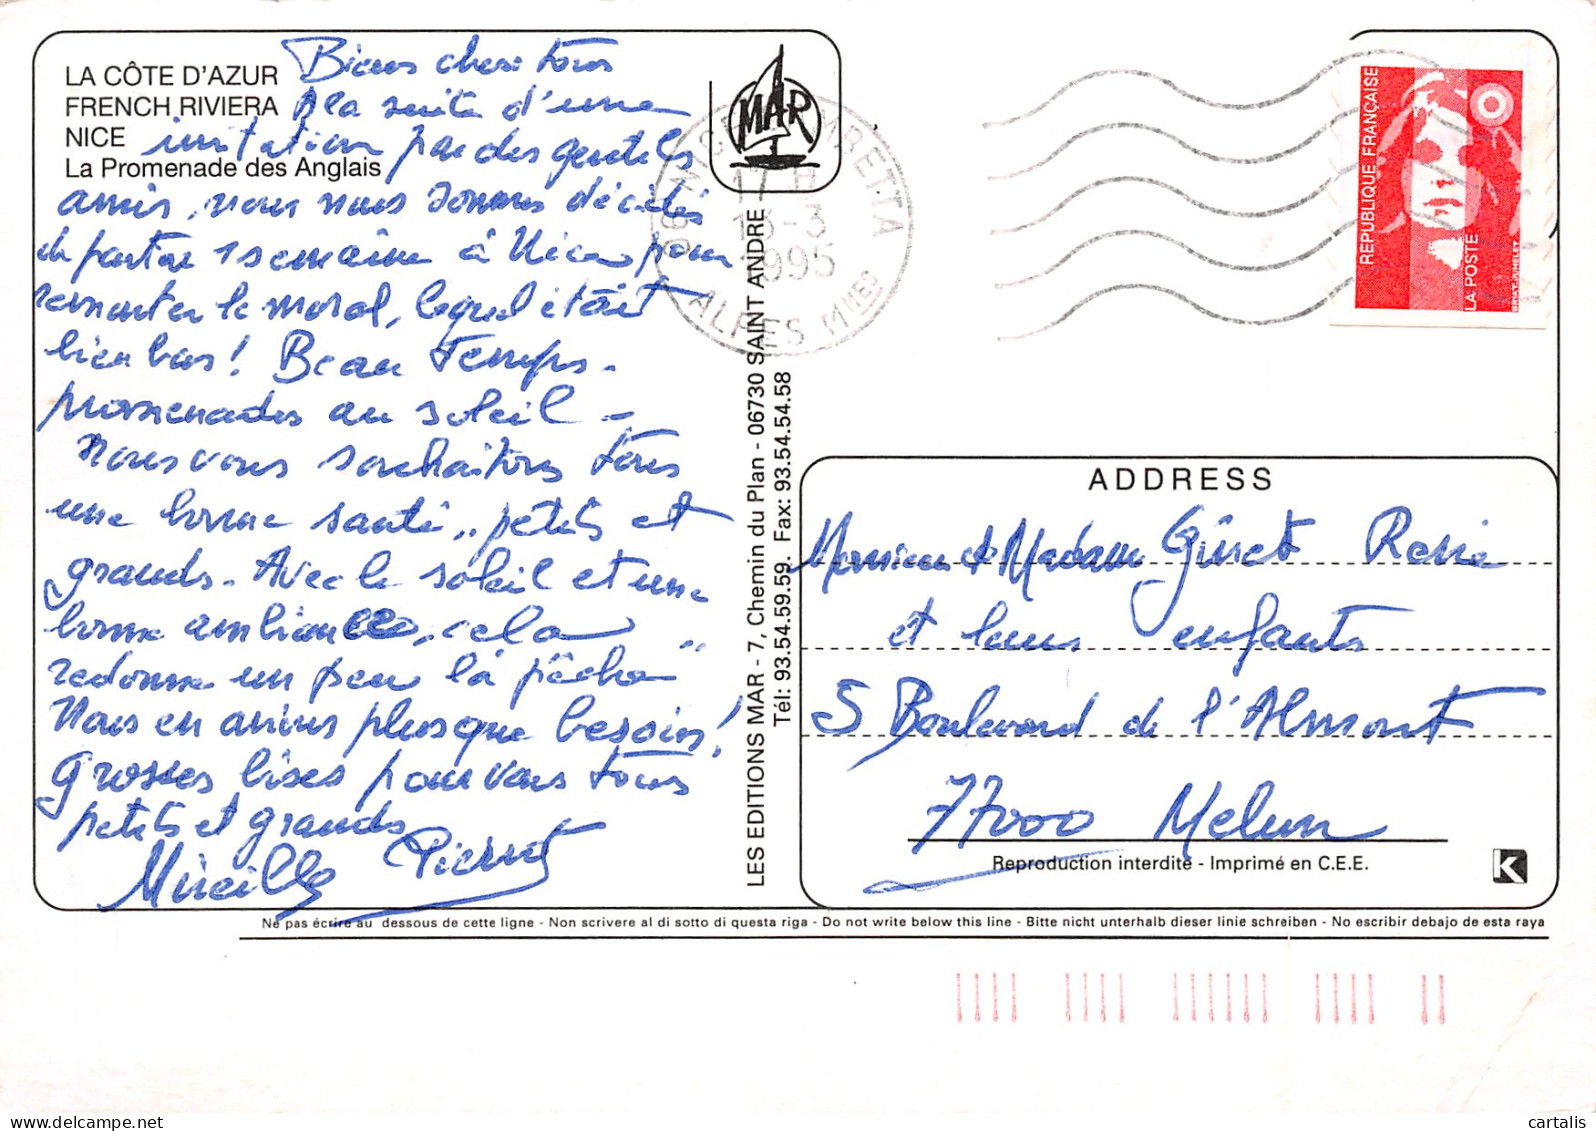 LA CÔTE D'AZUR
FRENCH RIVIERA
NICE
La Promenade des Anglais
Biens chers tous
A la suite d'une
invitation par des gentils
amis, nous nous sommes décidés
de partir 1 semaine à Nice pour
remonter le moral, lequel était
bien bas! Beau temps.
promenades au soleil -
Nous vous souhaitons tous
une bonne santé, petits et
grands. Avec le soleil et une
bonne ambiance, cela
redonne un peu la pêche
Nous en avions plus que besoin!
Grosses bises pour vous tous
petits et grands
Mireille Pierrot
MAR
06 NICE
17 H
13-3
1995
ALPES MMES
LES EDITIONS MAR - 7, Chemin du Plan - 06730 SAINT ANDRE
Tél: 93.54.59.59. Fax: 93.54.54.58
REPUBLIQUE FRANÇAISE
LA POSTE
BRIAT-JUMELET
ADDRESS
Monsieur et Madame Giret René
et leurs enfants
5 Boulevard de l'Almont
77000 Melun
Reproduction interdite - Imprimé en C.E.E.
K
Ne pas écrire au dessous de cette ligne - Non scrivere al di sotto di questa riga - Do not write below this line - Bitte nicht unterhalb dieser linie schreiben - No escribir debajo de esta raya
cartalis